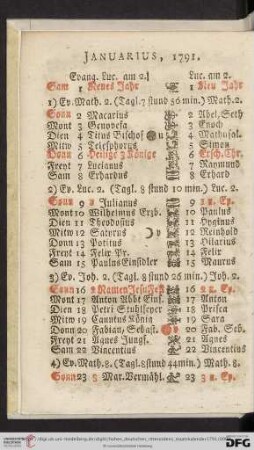 JANUARIUS, 1791.
Evang. Luc. am 2. Luc. am 2.
Sam 1 Neues Jahr 1 Neu Jahr
1) Ev. Math. 2. (Tagl. 7 stund 56 min.) Math. 2.
Sonn 2 Macarius 2 Abel, Seth
Mont 3 Genovefa 3 Enoch
Dien 4 Titus Bischof 4 Mathusal.
Mitw 5 Telesphorus 5 Simon
Donn 6 Heilige 3 Könige 6 Ersch. Chr.
Freyt 7 Lucianus 7 Raimund
Sam 8 Erhardus 8 Erhard
2) Ev. Luc. 2. (Tagl. 8 stund 10 min.) Luc. 2.
Sonn 9 Julianus 9
Mont 10 Wilhelmus Erzb. 10 Paulus
Dien 11 Theodosius 11 Hyginus
Mitw 12 Satyrus 12 Reinhold
Donn 13 Potitus 13 Hilarius
Freyt 14 Felix Pr. 14 Felix
Sam 15 Paulus Einsidler 15 Maurus
3) Ev. Joh. 2. (Tagl. 8 stund 26 min.) Joh. 2.
Sonn 16 2 Namen Jesu Fest 16 2
Mont 17 Anton Abbt Eins. 17 Anton
Dien 18 Petri Stuhlfeyer 18 Prisca
Mitw 19 Canutus König 19 Sara
Donn 20 Fabian, Sebast. 20 Fab. Seb.
Freyt 21 Agnes Jungf. 21 Agnes
Sam 22 Vincentius 22 Vincentius
4) Ev. Math. 8. (Tagl. 8 stund 44 min.) Math. 8.
Sonn 23 3 Mar. Vermähl. 23 3
DFG